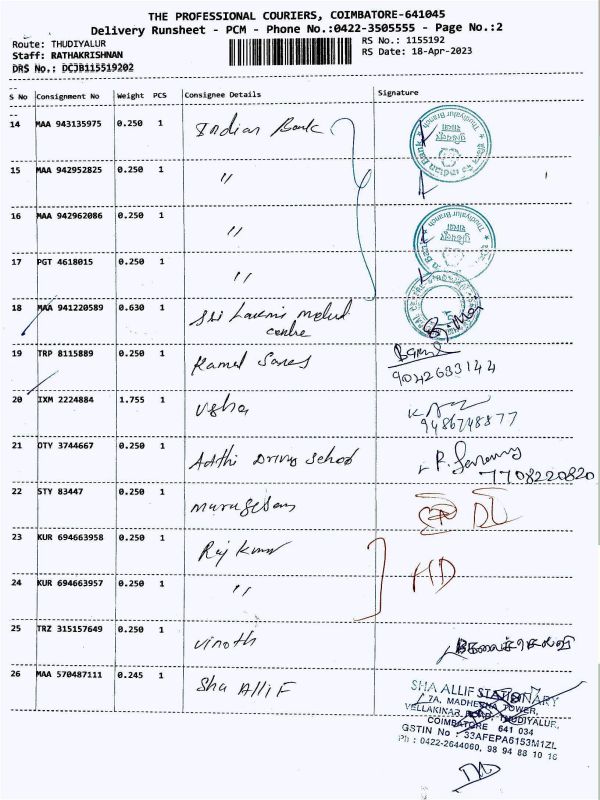 THE PROFESSIONAL COURIERS, COIMBATORE-641045
Delivery Runsheet - PCM - Phone No.:0422-3505555 - Page No.:2
Route: THUDIYALUR
RS No.: 1155192
Staff: RATHAKRISHNAN
RS Date: 18-Apr-2023
DRS No.: DCJB115519202
S No Consignment No Weight PCS Consignee Details Signature
14 MAA 943135975 0.250 1 Indian Bank
15 MAA 942952825 0.250 1 〃
16 MAA 942962086 0.250 1 〃
17 PGT 4618015 0.250 1 〃
18 MAA 941220589 0.630 1 Sri Laxmi
centre
19 TRP 8115889 0.250 1 Kamal
9042633144
20 IXM 2224884 1.755 1 Usha
9486748877
21 OTY 3744667 0.250 1 Adthi Driving School
7708220820
22 STY 83447 0.250 1 Murugesan DL
23 KUR 694663958 0.250 1 Raj Kumar
24 KUR 694663957 0.250 1 〃 HD
25 TRZ 315157649 0.250 1 Vinoth
26 MAA 570487111 0.245 1 Sha Allif
SHA ALLIF STATIONARY
7A, MADHESHA TOWER,
VELLAKINAR ROAD, THUDIYALUR,
COIMBATORE 641 034
GSTIN No : 33AFEPA6153M1ZL
Ph : 0422-2644060, 98 94 88 10 16